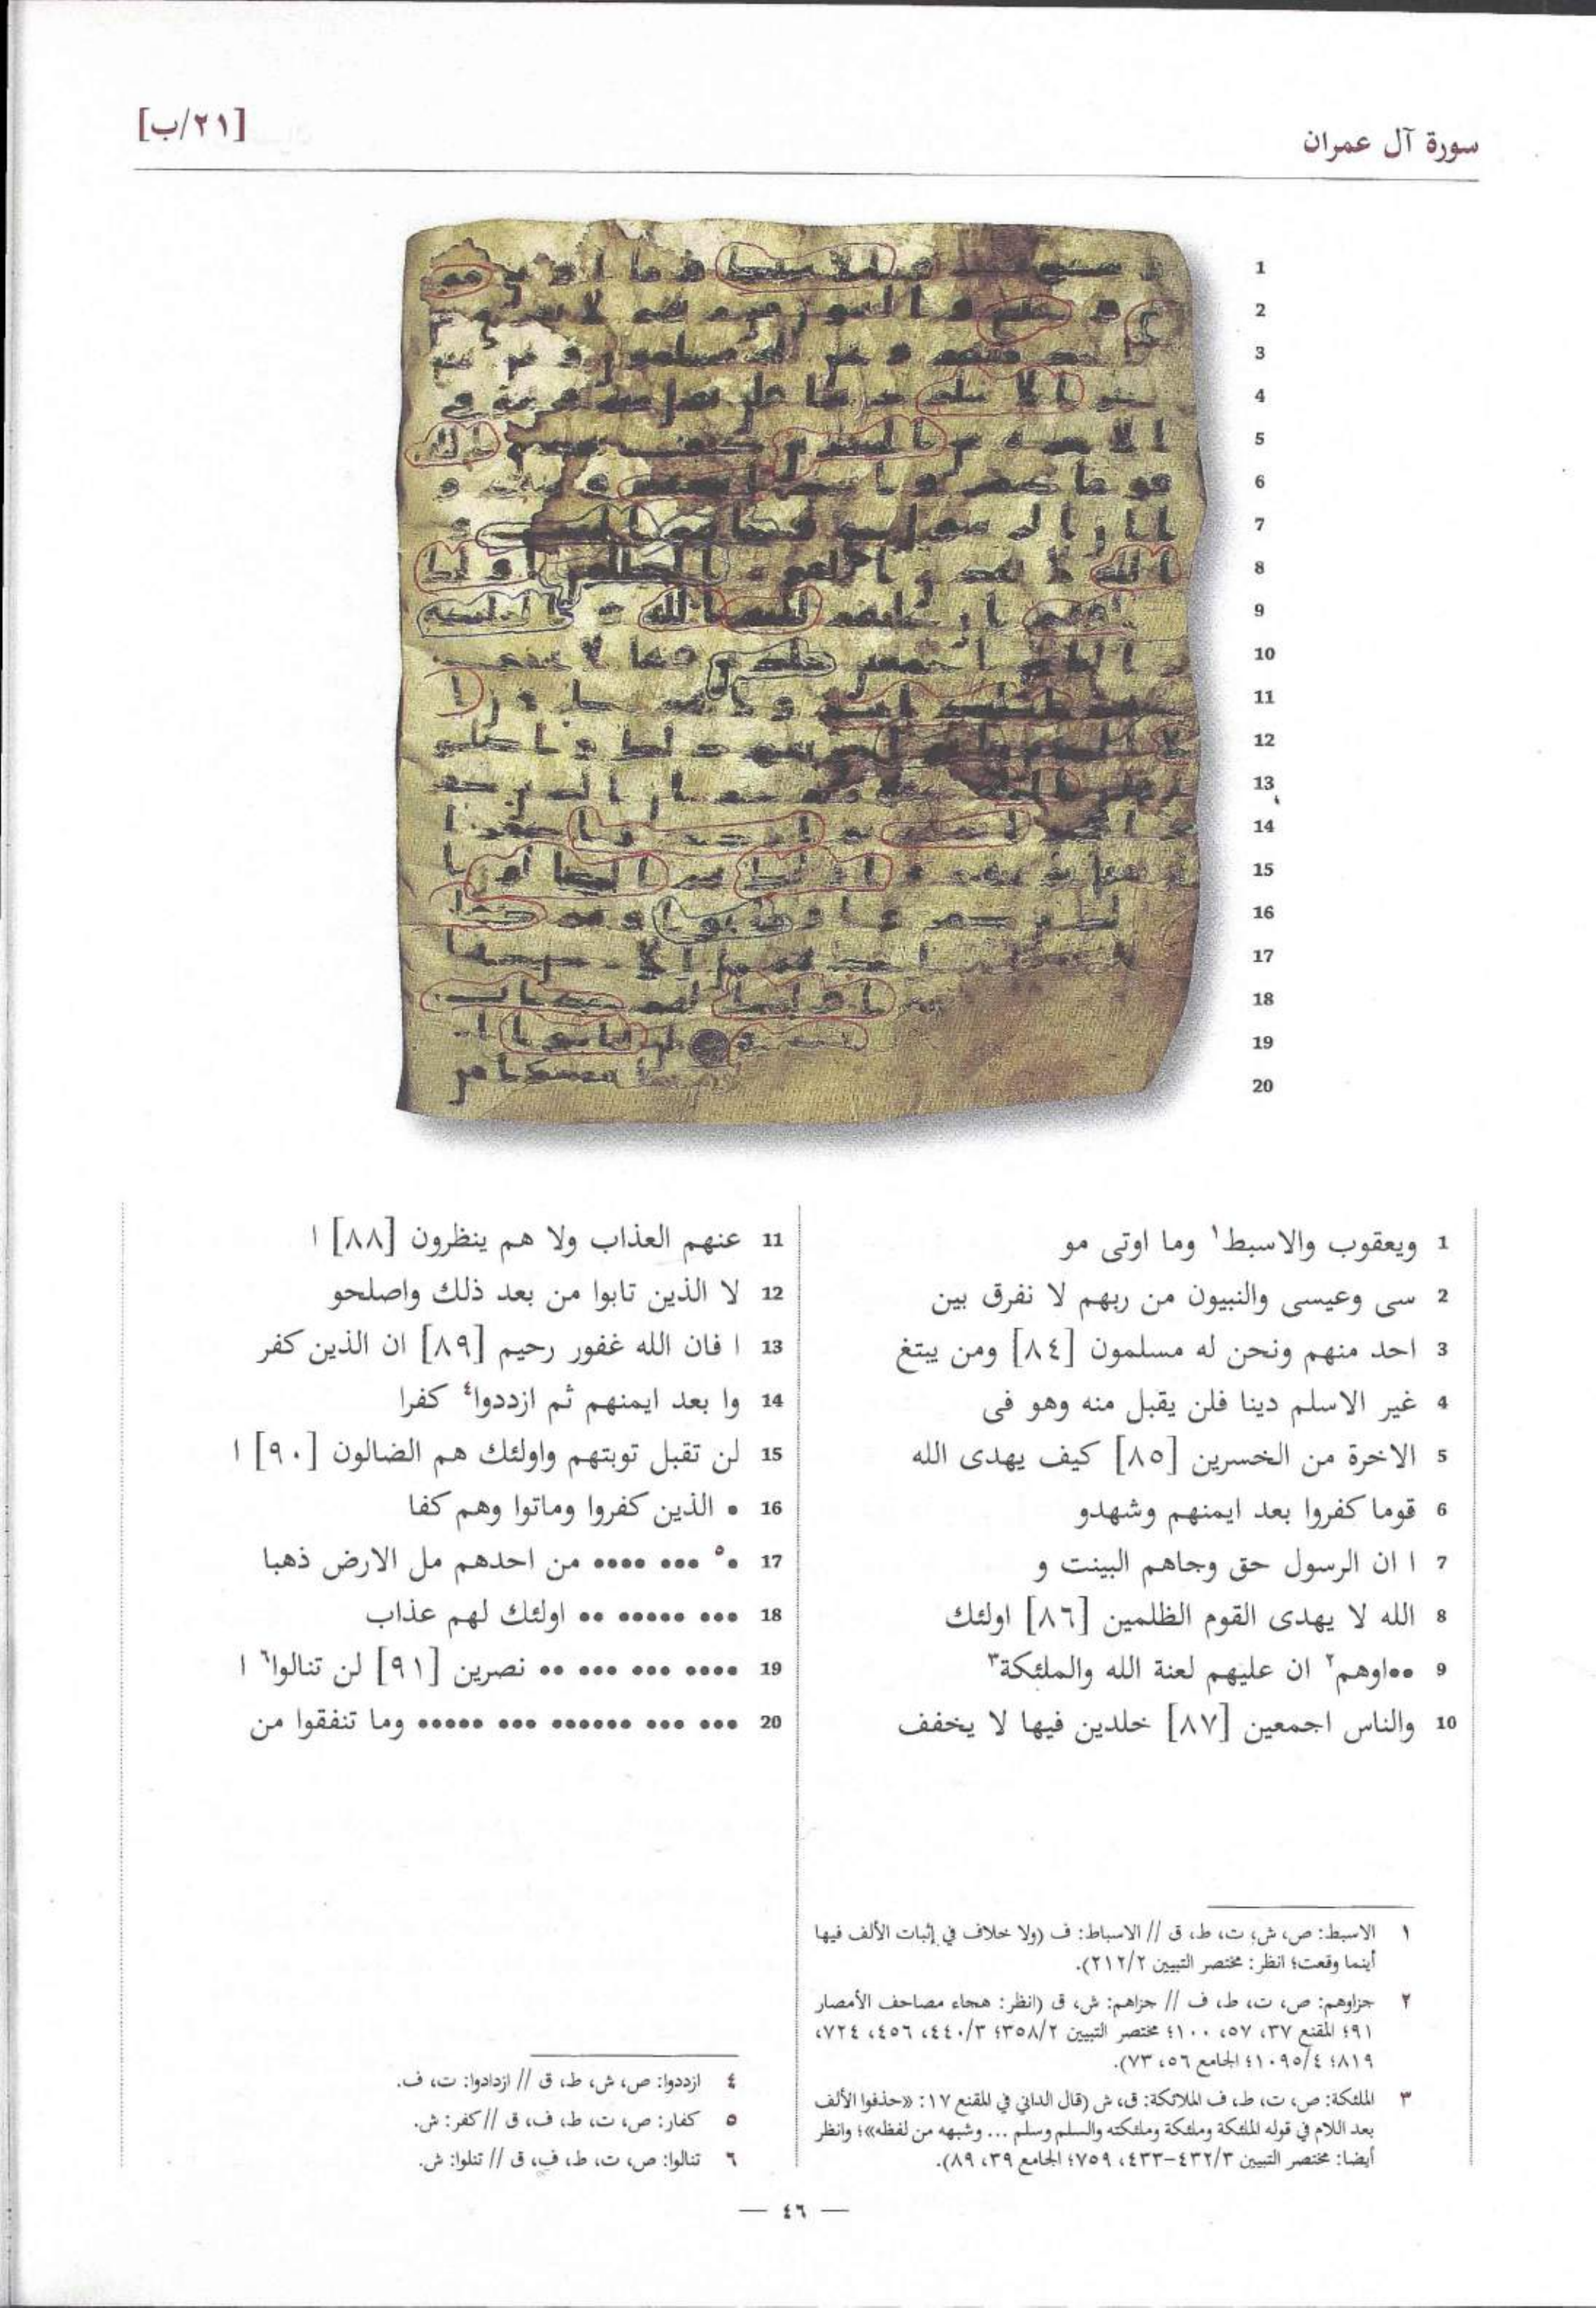 سورة آل عمران
[٢١/ب]
1
2
3
4
5
6
7
8
9
10
11
12
13
14
15
16
17
18
19
20
1 ويعقوب والاسبط١ وما اوتى مو
2 سى وعيسى والنبيون من ربهم لا نفرق بين
3 احد منهم ونحن له مسلمون [٨٤] ومن يبتغ
4 غير الاسلم دينا فلن يقبل منه وهو فى
5 الاخرة من الخسرين [٨٥] كيف يهدى الله
6 قوما كفروا بعد ايمنهم وشهدو
7 ا ان الرسول حق وجاهم البينت و
8 الله لا يهدى القوم الظلمين [٨٦] اولئك
9 ••اوهم٢ ان عليهم لعنة الله والملئكة٣
10 والناس اجمعين [٨٧] خلدين فيها لا يخفف
11 عنهم العذاب ولا هم ينظرون [٨٨] ا
12 لا الذين تابوا من بعد ذلك واصلحو
13 ا فان الله غفور رحيم [٨٩] ان الذين كفر
14 وا بعد ايمنهم ثم ازددوا٤ كفرا
15 لن تقبل توبتهم واولئك هم الضالون [٩٠] ا
16 • الذين كفروا وماتوا وهم كفا
17 •٥ ••• •••• من احدهم مل الارض ذهبا
18 ••• ••••• •• اولئك لهم عذاب
19 •••• ••• ••• •• نصرين [٩١] لن تنالوا٦ ا
20 ••• ••• •••••• ••• ••••• وما تنفقوا من
١ الاسبط: ص، ش، ت، ط، ق // الاسباط: ف (ولا خلاف في إثبات الألف فيها
أينما وقعت؛ انظر: مختصر التبيين ٢١٢/٢).
٢ جزاوهم: ص، ت، ط، ف // جزاهم: ش، ق (انظر: هجاء مصاحف الأمصار
٩١؛ المقنع ٣٧، ٥٧، ١٠٠؛ مختصر التبيين ٣٥٨/٢؛ ٤٤٠/٣، ٤٥٦، ٧٢٤،
٨١٩؛ ١٠٩٥/٤؛ الجامع ٥٦، ٧٣).
٣ الملئكة: ص، ت، ط، ف الملائكة: ق، ش (قال الداني في المقنع ١٧: «حذفوا الألف
بعد اللام في قوله الملئكة وملئكة وملئكته والسلم وسلم ... وشبهه من لفظه»؛ وانظر
أيضا: مختصر التبيين ٤٣٢/٣-٤٣٣، ٧٥٩؛ الجامع ٣٩، ٨٩).
٤ ازددوا: ص، ش، ط، ق // ازدادوا: ت، ف.
٥ كفار: ص، ت، ط، ف، ق // كفر: ش.
٦ تنالوا: ص، ت، ط، ف، ق // تنلوا: ش.
— ٤٦ —